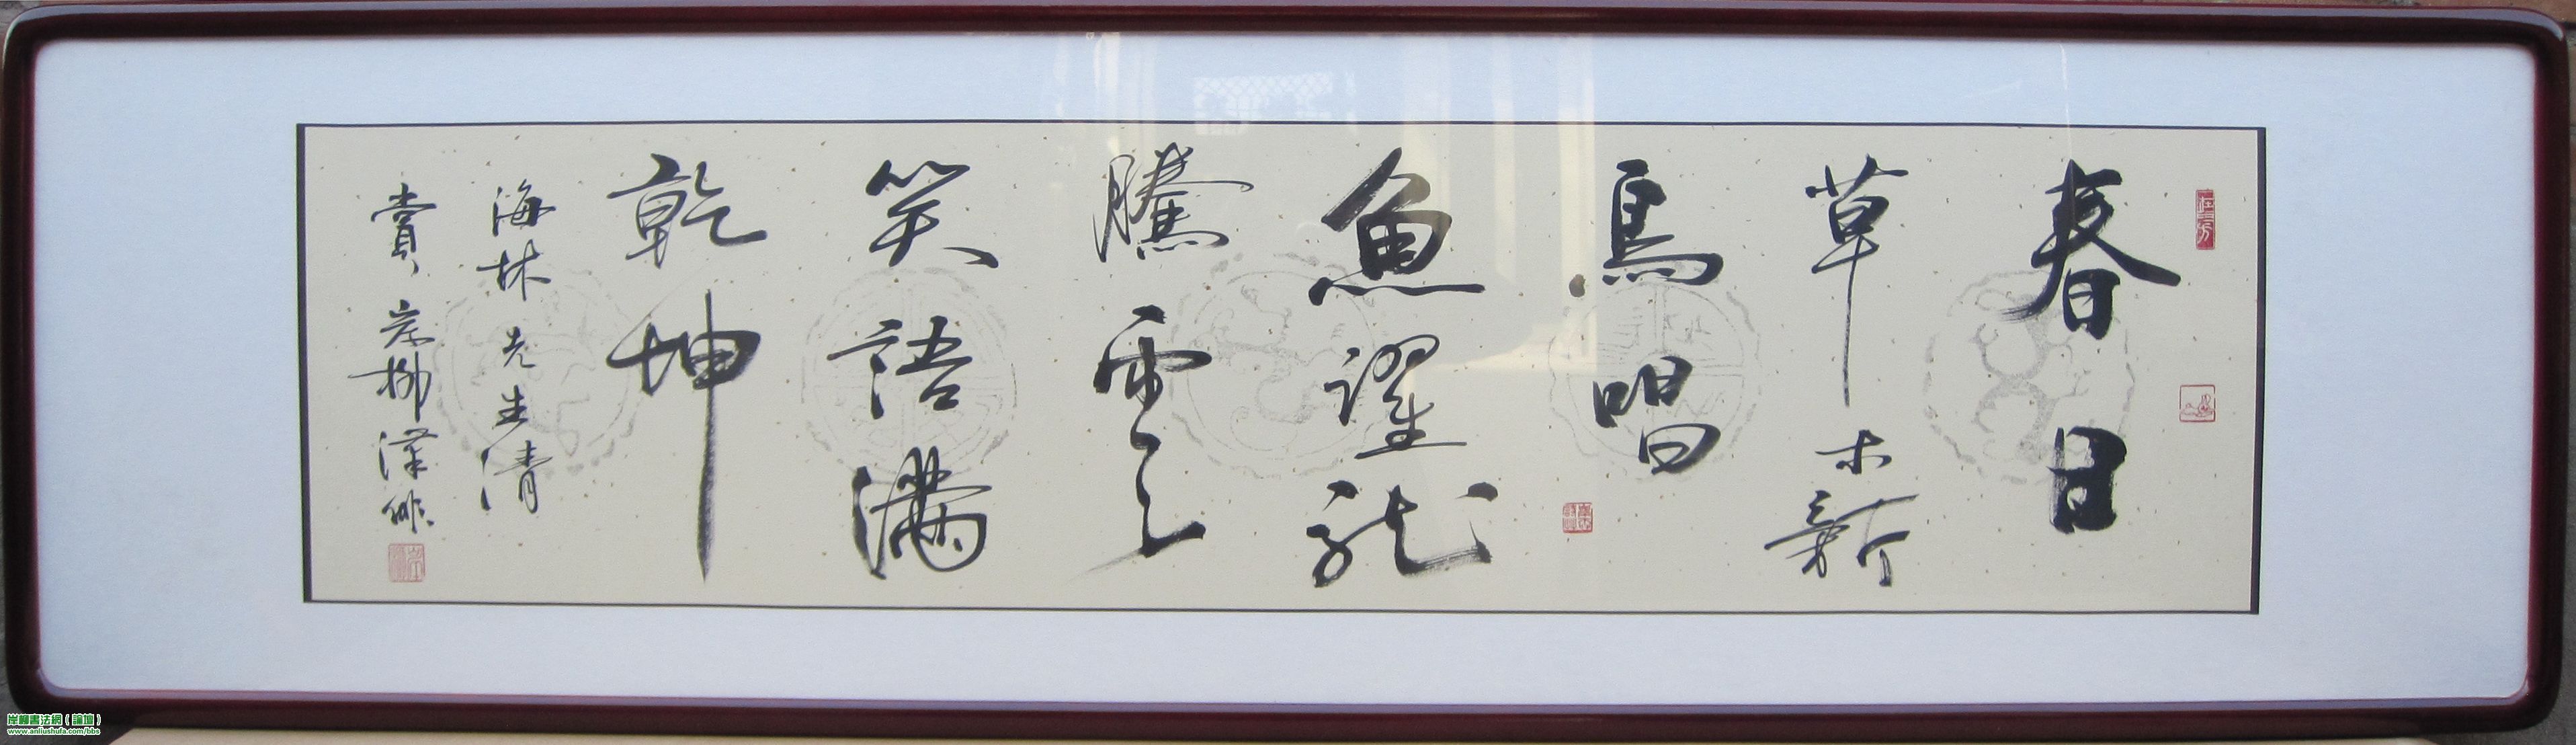 春日
草木新
鳥唱
魚躍龍
騰雲
笑語滿
乾坤
海林先生清
賞岸柳漢
岸柳書法網（論壇）
www.anliushufa.com/bbs